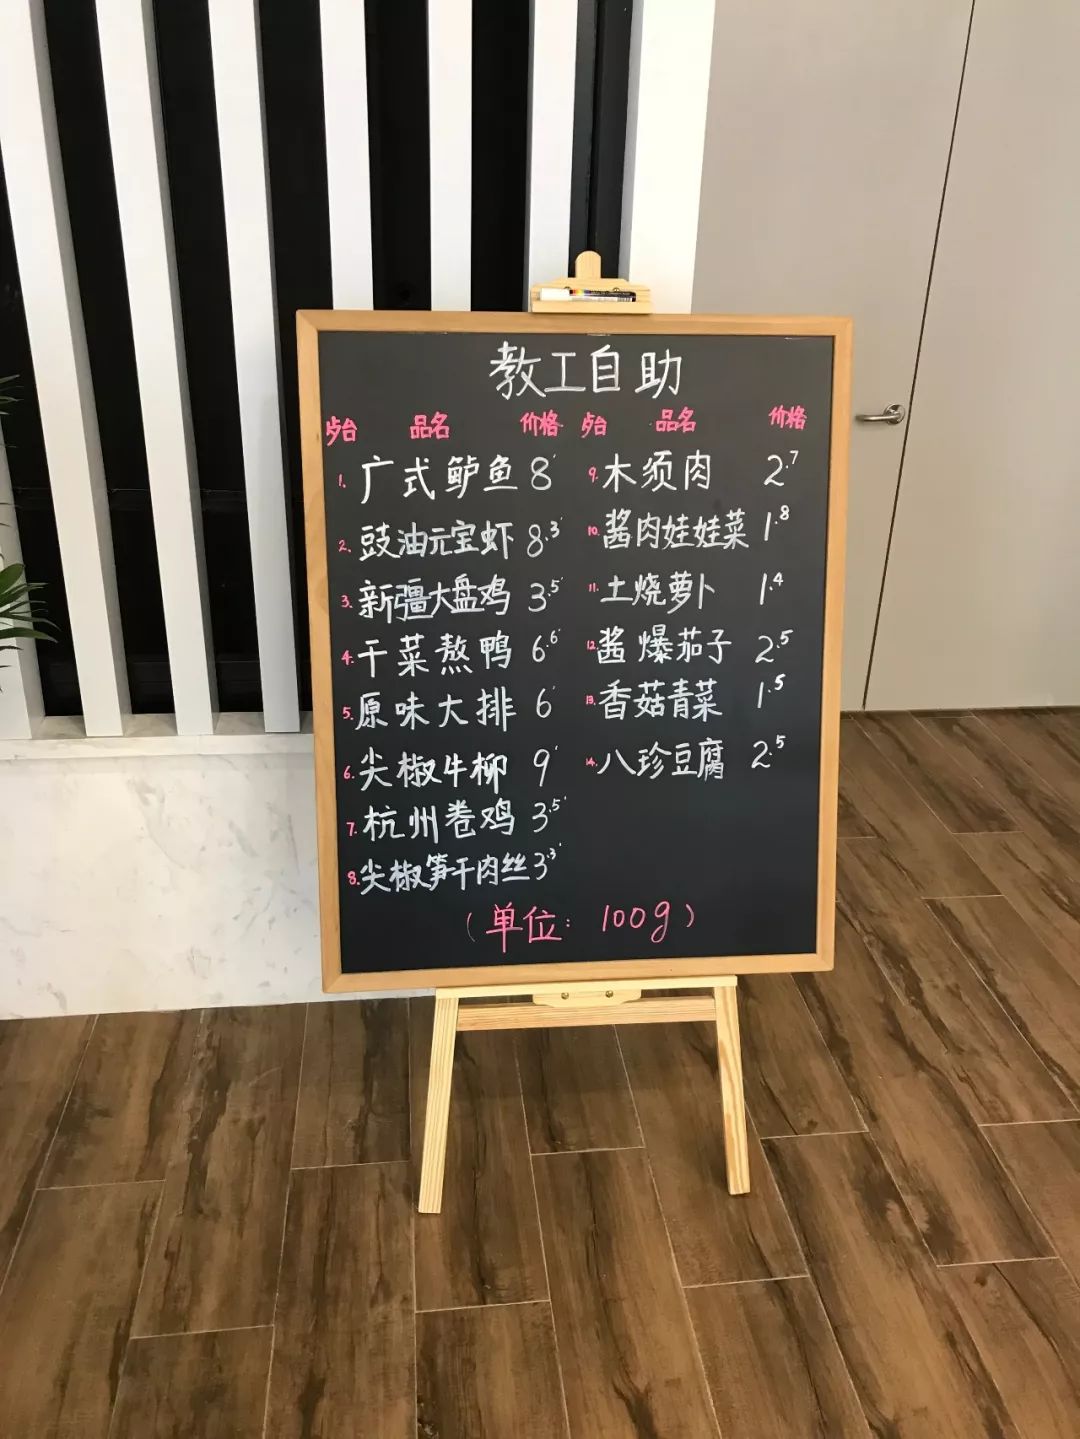 教工自助
台 品名 价格 台 品名 价格
1. 广式鲈鱼 8 9. 木须肉 2.7
2. 豉油元宝虾 8.3 10. 酱肉娃娃菜 1.8
3. 新疆大盘鸡 3.5 11. 土烧萝卜 1.4
4. 干菜熬鸭 6.6 12. 酱爆茄子 2.5
5. 原味大排 6 13. 香菇青菜 1.5
6. 尖椒牛柳 9 14. 八珍豆腐 2.5
7. 杭州卷鸡 3.5
8. 尖椒笋干肉丝 3.3
（单位：100g）